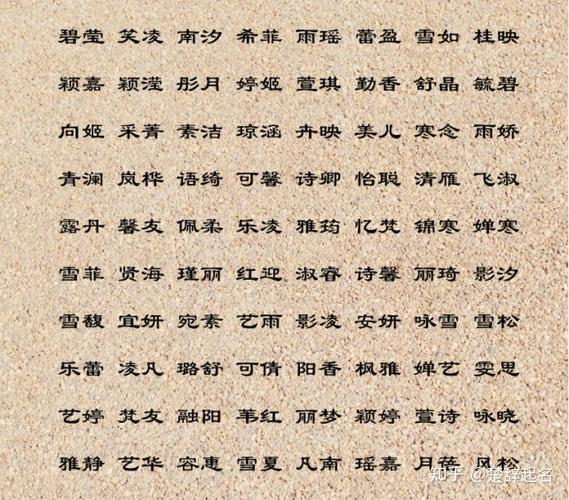 碧莹 笑凌 南汐 希菲 雨瑶 蕾盈 雪如 桂映
颖嘉 颖滢 彤月 婷姬 萱琪 勤香 舒晶 毓碧
向姬 采菁 素洁 琼涵 卉映 美儿 寒念 雨娇
青澜 岚桦 语绮 可馨 诗卿 怡聪 清雁 飞淑
露丹 馨友 佩柔 乐凌 雅筠 忆梵 锦寒 婵寒
雪菲 贤海 瑾丽 红迎 淑睿 诗馨 丽琦 影汐
雪馥 宜妍 宛素 艺雨 影凌 安妍 咏雪 雪松
乐蕾 凌凡 璐舒 可倩 阳香 枫雅 婵艺 雯思
艺婷 梵友 融阳 苇红 丽梦 颖婷 萱诗 咏晓
雅静 艺华 容惠 雪夏 凡南 瑶嘉 月蓓 风松
知乎 @楚辞起名